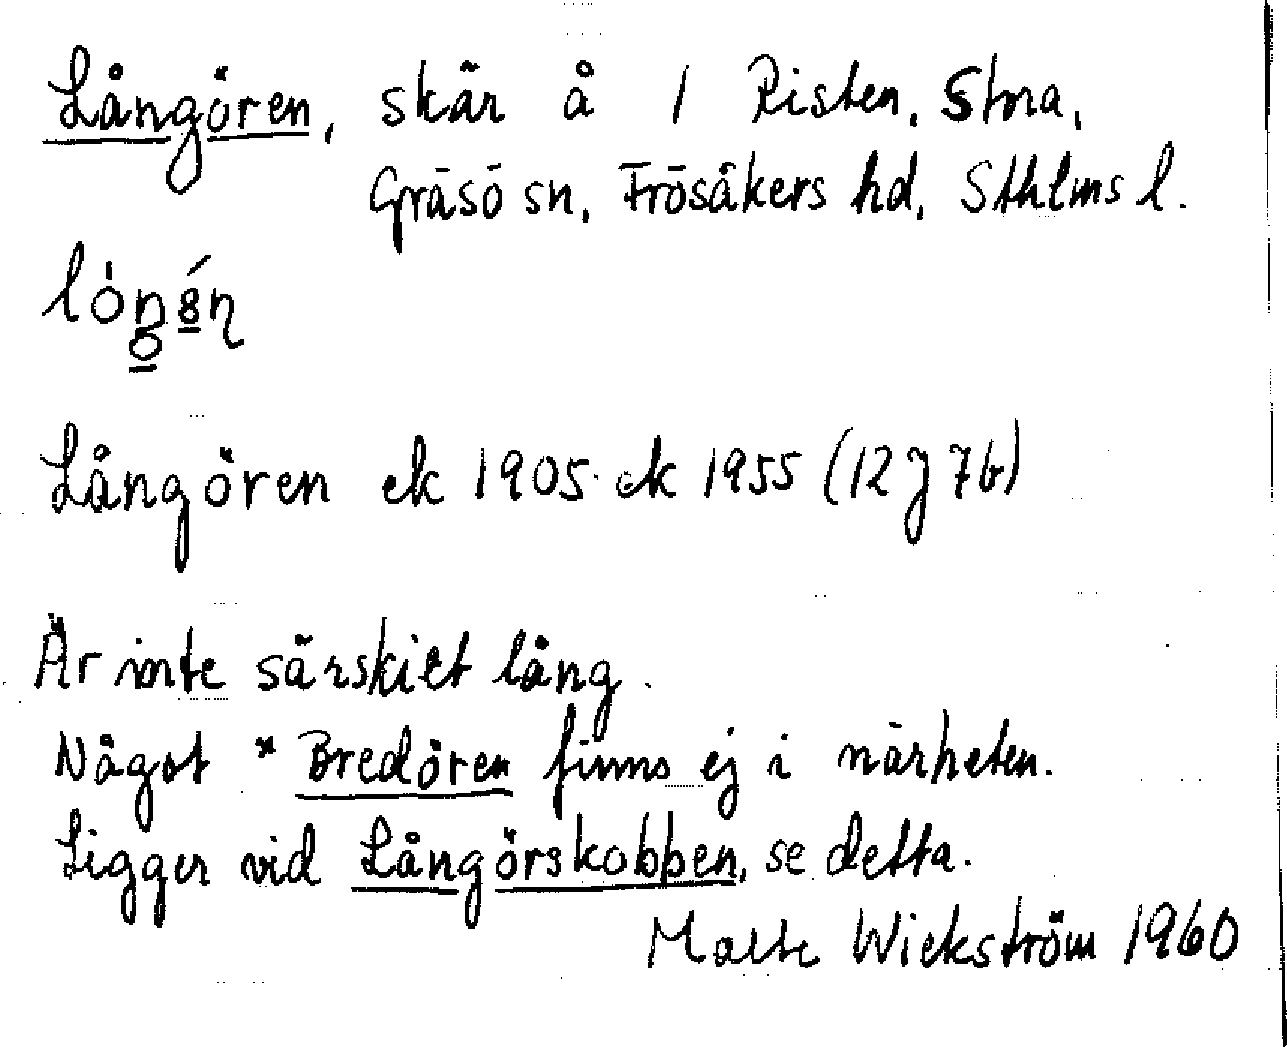 Långören, skär å / Risten, Stora,
Gräsö sn, Frösåkers hd, Sthlms l.
Långören ek 1905 ek 1955 (12 J 7b)
Är inte särskilt lång.
Något * Bredören finns ej i närheten.
Ligger vid Långörskobben, se detta.
Malte Wickström 1960